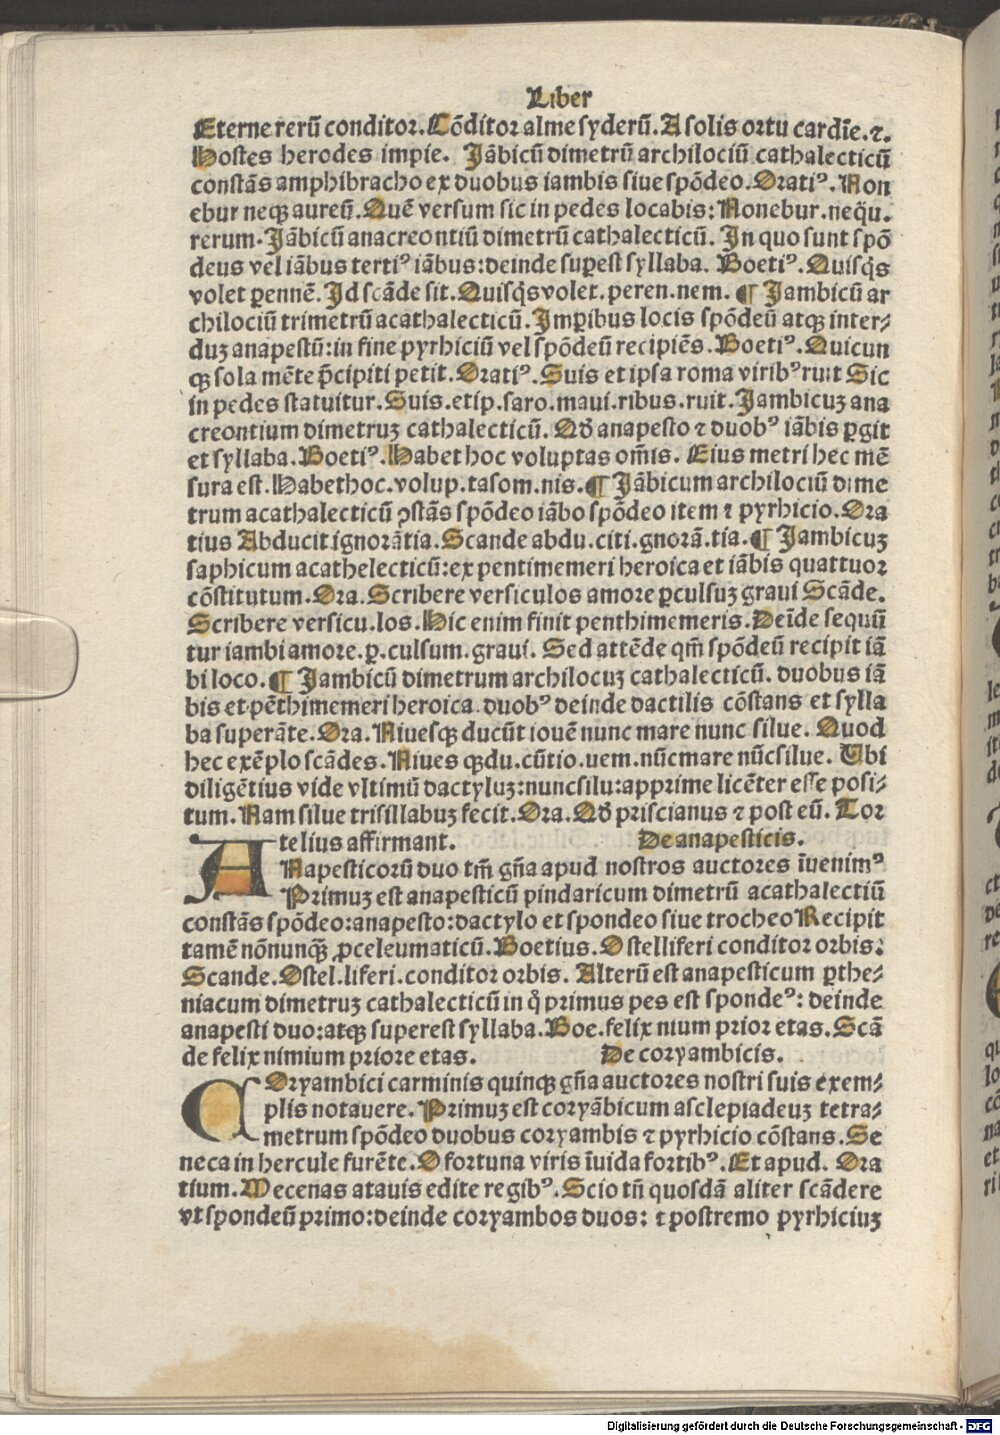 Liber
Eterne rerū conditor. Cōditor alme syderū. A solis ortu cardīe. ⁊.
Hostes herodes impie. Jābicū dimetrū archilociū cathalecticū
constās amphibracho ex duobus iambis siue spōdeo. Orati⁹. Non
ebur neqꝫ aureū. Quē versum sic in pedes locabis: Nonebur. neq̈u.
rerum. Jābicū anacreontiū dimetrū cathalecticū. In quo sunt spō
deus vel iābus terti⁹ iābus: deinde suꝑest syllaba. Boeti⁹. Quisq̇s
volet ꝑennē. Id scāde sit. Quisq̇s volet. peren. nem. ¶ Jambicū ar
chilociū trimetrū acathalecticū. Imꝑibus locis spōdeū atqꝫ inter⸗
duꝫ anapestū: in fine pyrhiciū vel spōdeū recipiēs. Boeti⁹. Quicun
qꝫ sola mēte p̄cipiti petit. Orati⁹. Suis et ipsa roma virib⁹ ruit Sic
in pedes statuitur. Suis. etip. saro. maui. ribus. ruit. Jambicuꝫ ana
creontium dimetruꝫ cathalecticū. Qđ anapesto ⁊ duob⁹ iābis ꝑgit
et syllaba. Boeti⁹. Habet hoc voluptas om̄is. Eius metri hec mē
sura est. Habethoc. volup. tasom. nis. ¶ Jābicum archilociū dime
trum acathalecticū ꝯstās spōdeo iābo spōdeo item ⁊ pyrhicio. Ora
tius Abducit ignorātia. Scande abdu. citi. gnorā. tia. ¶ Jambicuꝫ
saphicum acathelecticū: ex pentimemeri heroica et iābis quattuor
cōstitutum. Ora. Scribere versiculos amore ꝑculsuꝫ graui Scāde.
Scribere versicu. los. Hic enim finit penthimemeris. Deīde sequū
tur iambi amore. ꝑ. culsum. graui. Sed attēde qm̄ spōdeū recipit iā
bi loco. ¶ Jambicū dimetrum archilocuꝫ cathalecticū. duobus iā
bis et pēthimemeri heroica. duob⁹ deinde dactilis cōstans et sylla
ba superāte. Ora. Niuesqꝫ ducūt iouē nunc mare nunc silue. Quod
hec exēplo scādes. Niues qꝫdu. cūtio. uem. nūcmare nūcsilue. Ubi
diligētius vide vltimū dactyluꝫ: nuncsilu: apprime licēter esse posi⸗
tum. Nam silue trisillabuꝫ fecit. Ora. Qđ priscianus ⁊ post eū. Tor
telius affirmant. De anapesticis.
ANapesticorū duo tm̄ gn̄a apud nostros auctores īuenim⁹
Primuꝫ est anapesticū pindaricum dimetrū acathalectiū
constās spōdeo: anapesto: dactylo et spondeo siue trocheo Recipit
tamē nōnunqꝫ̄ ꝓceleumaticū. Boetius. O stelliferi conditor orbis:
Scande. Ostel. liferi. conditor orbis. Alterū est anapesticum ꝑthe⸗
niacum dimetruꝫ cathalecticū in q̊ primus pes est sponde⁹: deinde
anapesti duo: atqꝫ superest syllaba. Boe. felix nium prior etas. Scā
de felix nimium priore etas. De coryambicis.
COryambici carminis quinqꝫ gn̄a auctores nostri suis exem⸗
plis notauere. Primuꝫ est coryābicum asclepiadeuꝫ tetra⸗
metrum spōdeo duobus coryambis ⁊ pyrhicio cōstans. Se
neca in hercule furēte. O fortuna viris īuida fortib⁹. Et apud. Ora
tium. Mecenas atauis edite regib⁹. Scio tn̄ quosdā aliter scādere
vt spondeū primo: deinde coryambos duos: ⁊ postremo pyrhiciuꝫ
Digitalisierung gefördert durch die Deutsche Forschungsgemeinschaft - DFG